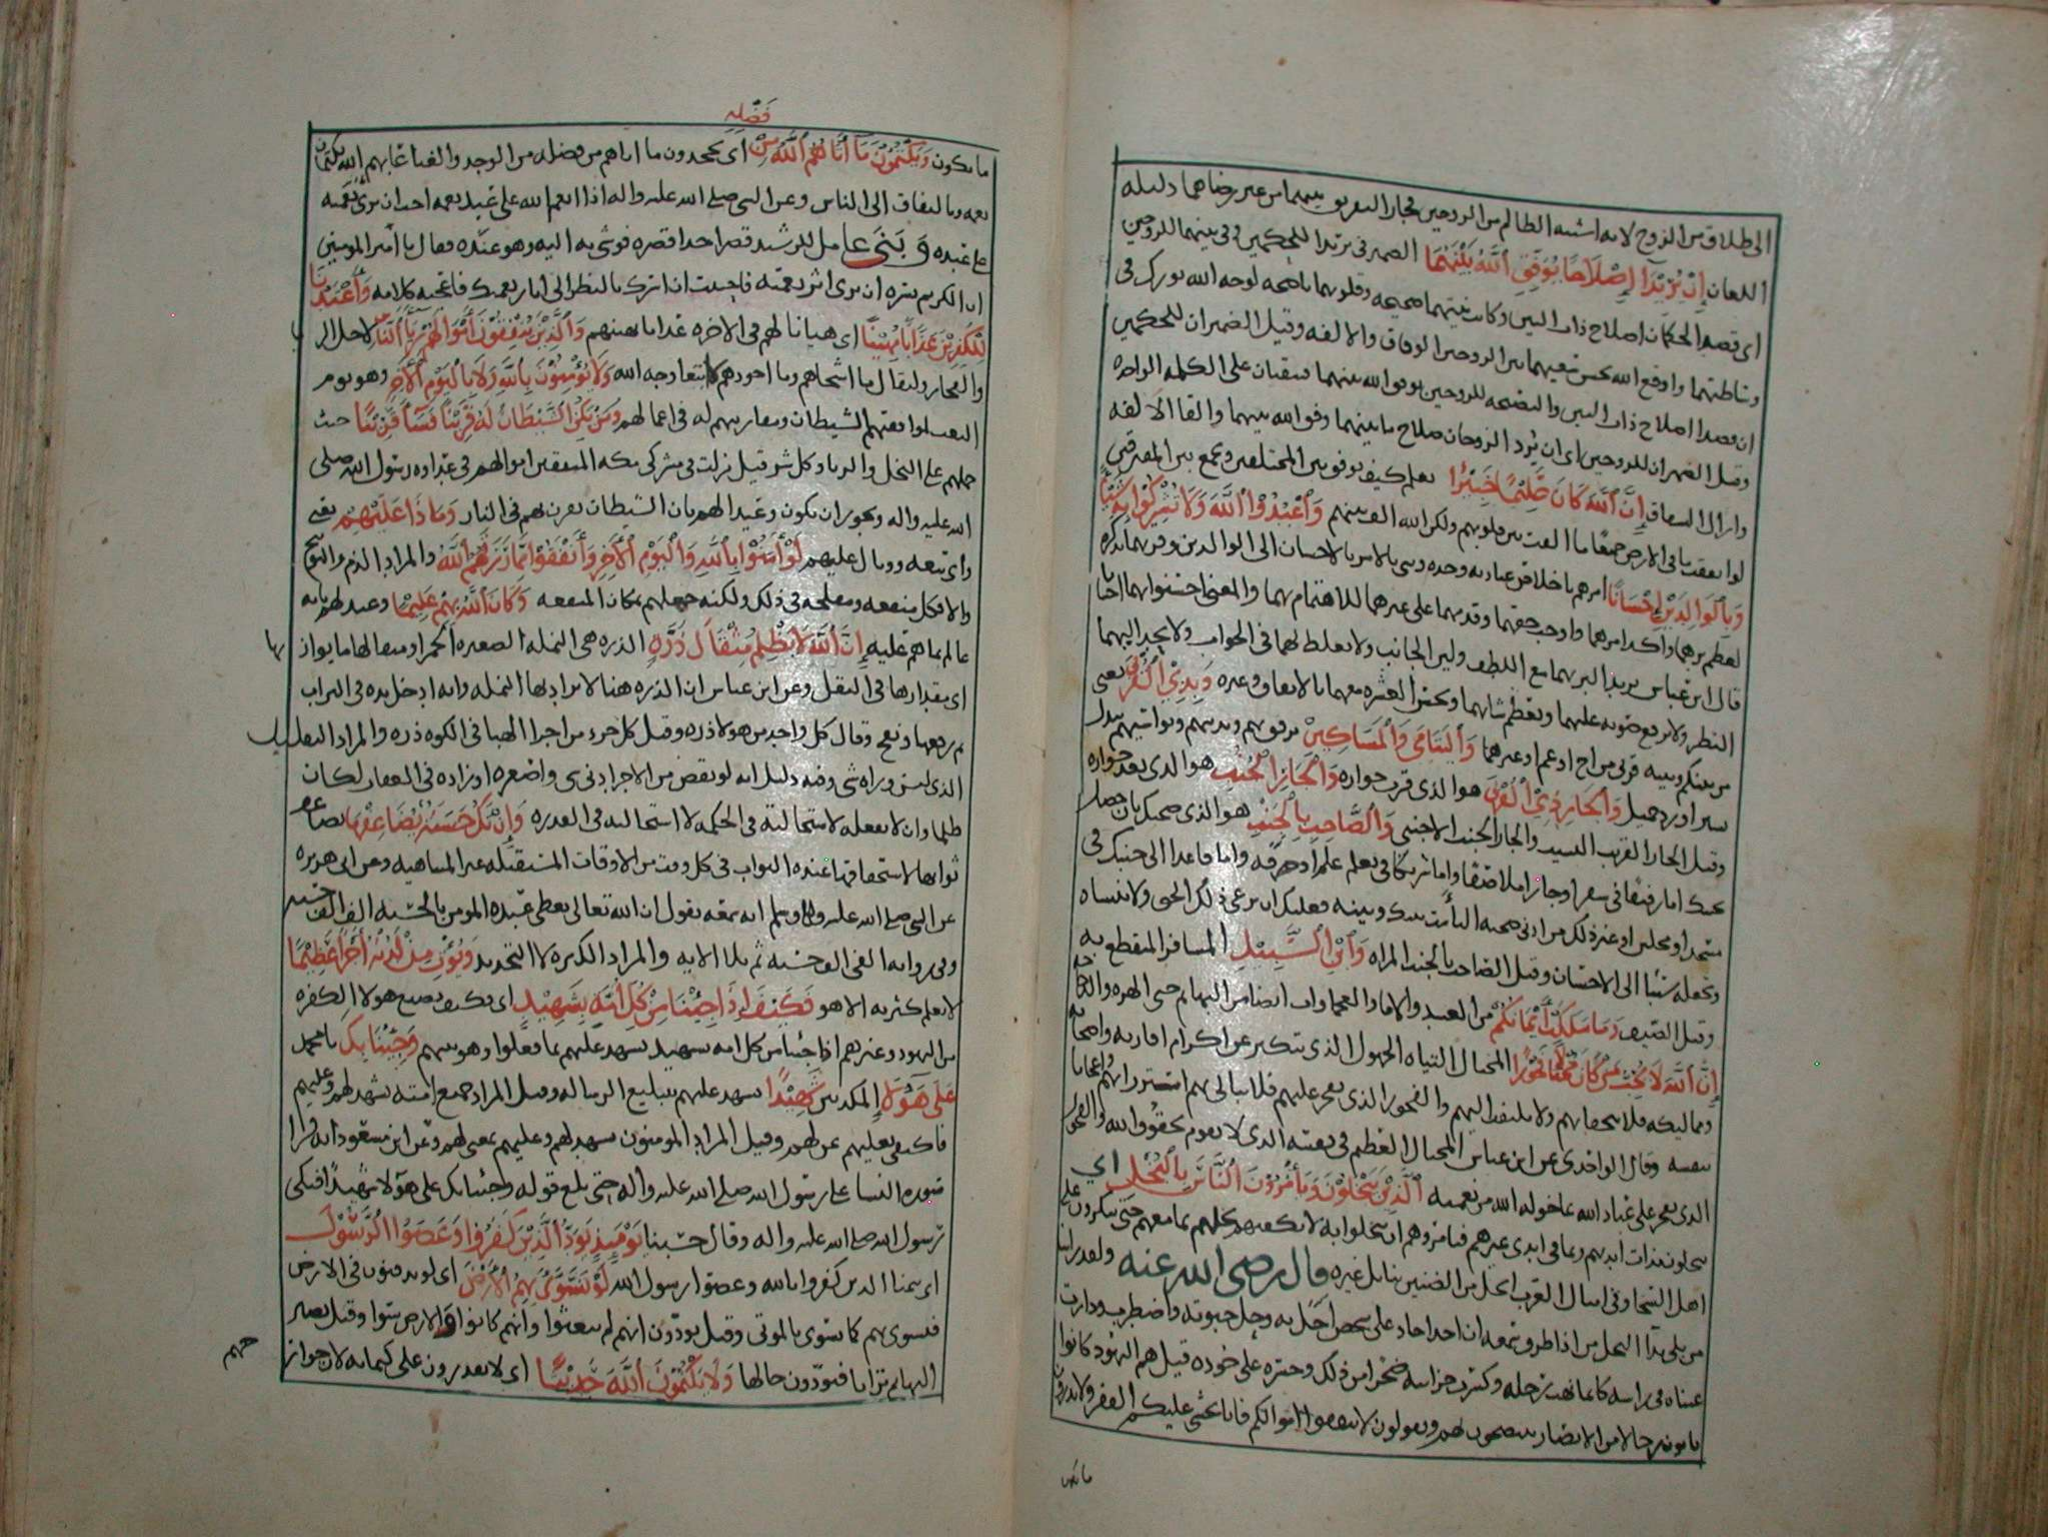 الى طلاق من الزوج لانه اشبه الظالم من الزوجين فجاز التفريق بينهما من غير رضاهما دليله
اللعان إِنْ يُرِيْدَآ إِصْلَاحًا يُوَفِّقِ اللَّهُ بَيْنَهُمَا الضمير في يريدا للحكمين وفي بينهما للزوجين
اى قصد الحكمان اصلاح ذات البين وكانت نيتهما صحيحه وقلوبهما ناصحه لوجه الله بورك في
وساطتهما واوقع الله بحسن سعيهما بين الزوجين الوفاق والالفه وقيل الضميران للحكمين
ان قصدا اصلاح ذات البين والنصيحه للزوجين يوفق الله بينهما فيتفقان على الكلمه الواحده
وقيل الضميران للزوجين اى ان يُرد الزوجان صلاح ما بينهما وفق الله بينهما والقا الالفه
وازال الشقاق إِنَّ اللَّهَ كَانَ عَلِيْمًا خَبِيْرًا يعلم كيف يوفق بين المختلفين ويجمع بين المفترقين
لو انفقت ما في الارض جميعًا ما الفت بين قلوبهم ولكن الله الف بينهم وَاعْبُدُوْا اللَّهَ وَلَا تُشْرِكُوْا بِهِ شَيْئًا
وَبِالْوَالِدَيْنِ إِحْسَانًا امرهم باخلاص عبادته وحده وثنى بالامر بالاحسان الى الوالدين
لعظم برهما واكد امرهما واوجب حقهما وقدمهما على غيرهما للاهتمام بهما والمعنى احسنوا بهما احسانا
قال ابن عباس يريد البر بهما مع اللطف ولين الجانب ولا يغلظ لهما في الجواب ولا يحد اليهما
النظر ولا يرفع صوته عليهما ويعظم شانهما ويحسن العشره معهما بالانفاق وغيره وَبِذِي الْقُرْبَى يعني
من بينكم وبينه قربى من اخ او عم او غيرهما وَالْيَتَامَى وَالْمَسَاكِيْنَ
وَالْجَارِ ذِي الْقُرْبَى هو الذي قرب جواره وَالْجَارِ الْجُنُبِ هو الذي بعد جواره
وقيل الجار القريب النسيب والجار الجنب الاجنبي وَالصَّاحِبِ بِالْجَنْبِ هو الذي صحبك بان حصل
بجنبك اما رفيقًا في سفر او جارا ملاصقًا واما شريكا في تعلم علم او حرفه واما قاعدا الى جنبك في
مسجد او مجلس او غير ذلك من ادنى صحبه التأمت بينك وبينه فعليك ان ترعى ذلك الحق ولا تنساه
وتجعله سببًا الى الاحسان وقيل الصاحب بالجنب المراه وَابْنِ السَّبِيْلِ المسافر المنقطع به
وقيل الضيف وَمَا مَلَكَتْ أَيْمَانُكُمْ من العبيد والاماء
إِنَّ اللَّهَ لَا يُحِبُّ مَنْ كَانَ مُخْتَالًا فَخُوْرًا المختال التياه الجهول الذي يتكبر عن اكرام اقاربه واصحابه
ومماليكه فلا يتحفا بهم ولا يلتفت اليهم والفخور الذي يفخر عليهم
بنفسه وقال الواحدي عن ابن عباس المختال العظيم في نفسه الذي لا يقوم بحقوق الله والفخور
الذي يفخر على عباد الله بما خوله الله من نعمته الَّذِيْنَ يَبْخَلُوْنَ وَيَأْمُرُوْنَ النَّاسَ بِالْبُخْلِ اي
يبخلون بذات ايديهم وبما في ايدي غيرهم فيامروهم ان يبخلوا به
اهل السخا وفي امثال العرب ابخل من الضنين بنايل غيره قال رضي الله عنه ولقد راينا
من بلي بداء البخل من اذا طرق سمعه ان احدا جاد على شخص احل به وحل حبوته واضطرب ودارت
عيناه في راسه كانما نهب رحله وكسرت خزانته ضجرا من ذلك وحسره على وجوده قيل هم اليهود كانوا
ياتون رجالا من الانصار ينتصحون لهم ويقولون لا تنفقوا اموالكم فانا نخشى عليكم الفقر ولا تدرون
ما يكون
فَضْلِهِ
ما يكون وَيَكْتُمُوْنَ مَآ أَتَاهُمُ اللَّهُ مِنْ اى يجحدون ما اتاهم من فضله من الوجد والغنا عابهم الله بكتمان
نعمه وبالتفاق الى الناس وعن النبي صلى الله عليه واله اذا انعم الله على عبد نعمه احب ان ترى نعمته
على عبده وَبَنَى عامل للرشيد قصرا حذا قصره فوشى به اليه وهو عنده فقال يا امير المومنين
ان الكريم يسره ان يرى اثر نعمته فاحببت ان اسرك بالنظر الى اثار نعمتك فاعجبه كلامه وَأَعْتَدْنَا
لِلْكَفِرِيْنَ عَذَابًا مُهِيْنًا اى هيانا لهم في الاخره عذابا يهينهم وَالَّذِيْنَ يُنْفِقُوْنَ أَمْوَالَهُمْ رِئَاءَ النَّاسِ لاجل الريا
والفخار وليقال ما اسخاهم وما اجودهم لا ابتغا وجه الله وَلَا يُؤْمِنُوْنَ بِاللَّهِ وَلَا بِالْيَوْمِ الْأَخِرِ وهو يوم
البعث لموافقتهم الشيطان ومقارنتهم له في اعمالهم وَمَنْ يَكُنِ الشَّيْطَانُ لَهُ قَرِيْنًا فَسَآءَ قَرِيْنًا حيث
حملهم على البخل والريا وكل شر قيل نزلت في مشركى مكه المنفقين اموالهم في عداوه رسول الله صلى
الله عليه واله ويجوز ان يكون وعيدا لهم بان الشيطان يقرن بهم في النار وَمَاذَا عَلَيْهِمْ يعنى
واى تبعه ووبال عليهم لَوْ أَمَنُوْا بِاللَّهِ وَالْيَوْمِ الْأَخِرِ وَأَنْفَقُوْا مِمَّا رَزَقَهُمُ اللَّهُ والمراد الذم والتوبيخ
والا فكل منفعه ومصلحه في ذلك ولكنه جهلهم بمكان المنفعه وَكَانَ اللَّهُ بِهِمْ عَلِيْمًا وعيد لهم بانه
عالم بما هم عليه إِنَّ اللَّهَ لَا يَظْلِمُ مِثْقَالَ ذَرَّةٍ الذره هى النمله الصغيره الحمرا ومثقالها ما يوازنها
اى مقدارها في الثقل وعن ابن عباس ان الذره هنا لا يراد بها النمله وانه ادخل يده في التراب
ثم رفعها ونفخ وقال كل واحد من هولا ذره وقيل كل جزء من اجزا الهبا في الكوه ذره والمراد التقليل
الذى ليس وراه شى وفيه دليل انه لو نقص من الاجر ادنى شى واصغره او زاده في العقاب لكان
ظلما وان لا يفعله لاستحالته في الحكمه لا استحالته في القدره وَإِنْ تَكُ حَسَنَةً يُضَاعِفْهَا يضاعف
ثوابها لاستحقاقها عنده الثواب في كل وقت من الاوقات المستقبله غير المتناهيه وعن ابى هريره
عن النبى صلى الله عليه واله وسلم انه سمعه يقول ان الله تعالى يعطى عبده المومن بالحسنه الف الف حسنه
وفى روايه الفى الف حسنه ثم تلا الايه والمراد الكثره لا التحديد وَيُؤْتِ مِنْ لَدُنْهُ أَجْرًا عَظِيْمًا
لا يعلم كثرته الا هو فَكَيْفَ إِذَا جِئْنَا مِنْ كُلِّ أُمَّةٍ بِشَهِيْدٍ اى فكيف يصنع هولا الكفره
من اليهود وغيرهم اذا جئنا من كل امه بشهيد يشهد عليهم بما فعلوا وهو نبيهم وَجِئْنَا بِكَ يا محمد
عَلَى هَؤُلَآءِ المكذبين شَهِيْدًا يشهد عليهم بتبليغ الرساله وقيل المراد جميع امته يشهد لهم وعليهم
فاكتفى بعليهم عن لهم وقيل المراد المومنون يشهد لهم وعليهم بمعنى لهم وعن ابن مسعود انه قرا
سوره النسا على رسول الله صلى الله عليه واله حتى بلغ قوله وجئنا بك على هؤلا شهيدًا فبكى
رسول الله صلى الله عليه واله وقال حسبنا يَوْمَئِذٍ يَوَدُّ الَّذِيْنَ كَفَرُوْا وَعَصَوُا الرَّسُوْلَ
اى يتمنا الذين كفروا بالله وعصوا رسول الله لَوْ تُسَوَّى بِهِمُ الْأَرْضُ اى لو يدفنون في الارض
فتسوى بهم كما تسوى بالموتى وقيل يودون انهم لم يبعثوا وانهم كانوا والارض سوا وقيل تصير
البهائم ترابا فيودون حالها وَلَا يَكْتُمُوْنَ اللَّهَ حَدِيْثًا اى لا يقدرون على كتمانه لان جوارحهم